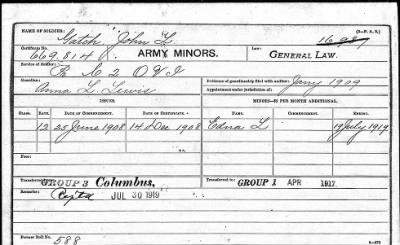 (3-P. A. R.)
NAME OF SOLDIER: Gatch John L. 16987
Certificate No. 669.814 ARMY MINORS. Law: GENERAL LAW.
Service of Soldier: K C 2 O V I
Guardian: Anna L. Lewis
Evidence of guardianship filed with auditor: Jany 1909
Appointment under jurisdiction of
ISSUES. MINORS—$2 PER MONTH ADDITIONAL.
CLASS. RATE. DATE OF COMMENCEMENT. DATE OF CERTIFICATE. NAME. COMMENCING. ENDING.
12 25 June 1908 14 Dec 1908 Edna L 19 July 1919
Fee:
Transferred to GROUP 3 Columbus, Transferred to: GROUP 1 APR 1917
Remarks: JUL 30 1919
Former Roll No.
588